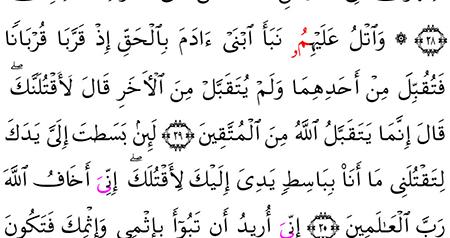 ﴿٢٨﴾ ۞ وَٱتْلُ عَلَيْهِمُۥ نَبَأَ ٱبْنَىْ ءَادَمَ بِالْحَقِّ إِذْ قَرَّبَا قُرْبَانًا
فَتُقُبِّلَ مِنْ أَحَدِهِمَا وَلَمْ يُتَقَبَّلْ مِنَ ٱلْأَخَرِ قَالَ لَأَقْتُلَنَّكَۖ
قَالَ إِنَّمَا يَتَقَبَّلُ ٱللَّهُ مِنَ ٱلْمُتَّقِينَ ﴿٢٩﴾ لَئِنۢ بَسَطتَ إِلَىَّ يَدَكَ
لِتَقْتُلَنِى مَا أَنَا۠ بِبَاسِطٍ يَدِىَ إِلَيْكَ لِأَقْتُلَكَۖ إِنِّىَ أَخَافُ ٱللَّهَ
رَبَّ ٱلْعَٰلَمِينَ ﴿٣٠﴾ إِنِّىَ أُرِيدُ أَن تَبُوٓأَ بِإِثْمِى وَإِثْمِكَ فَتَكُونَ